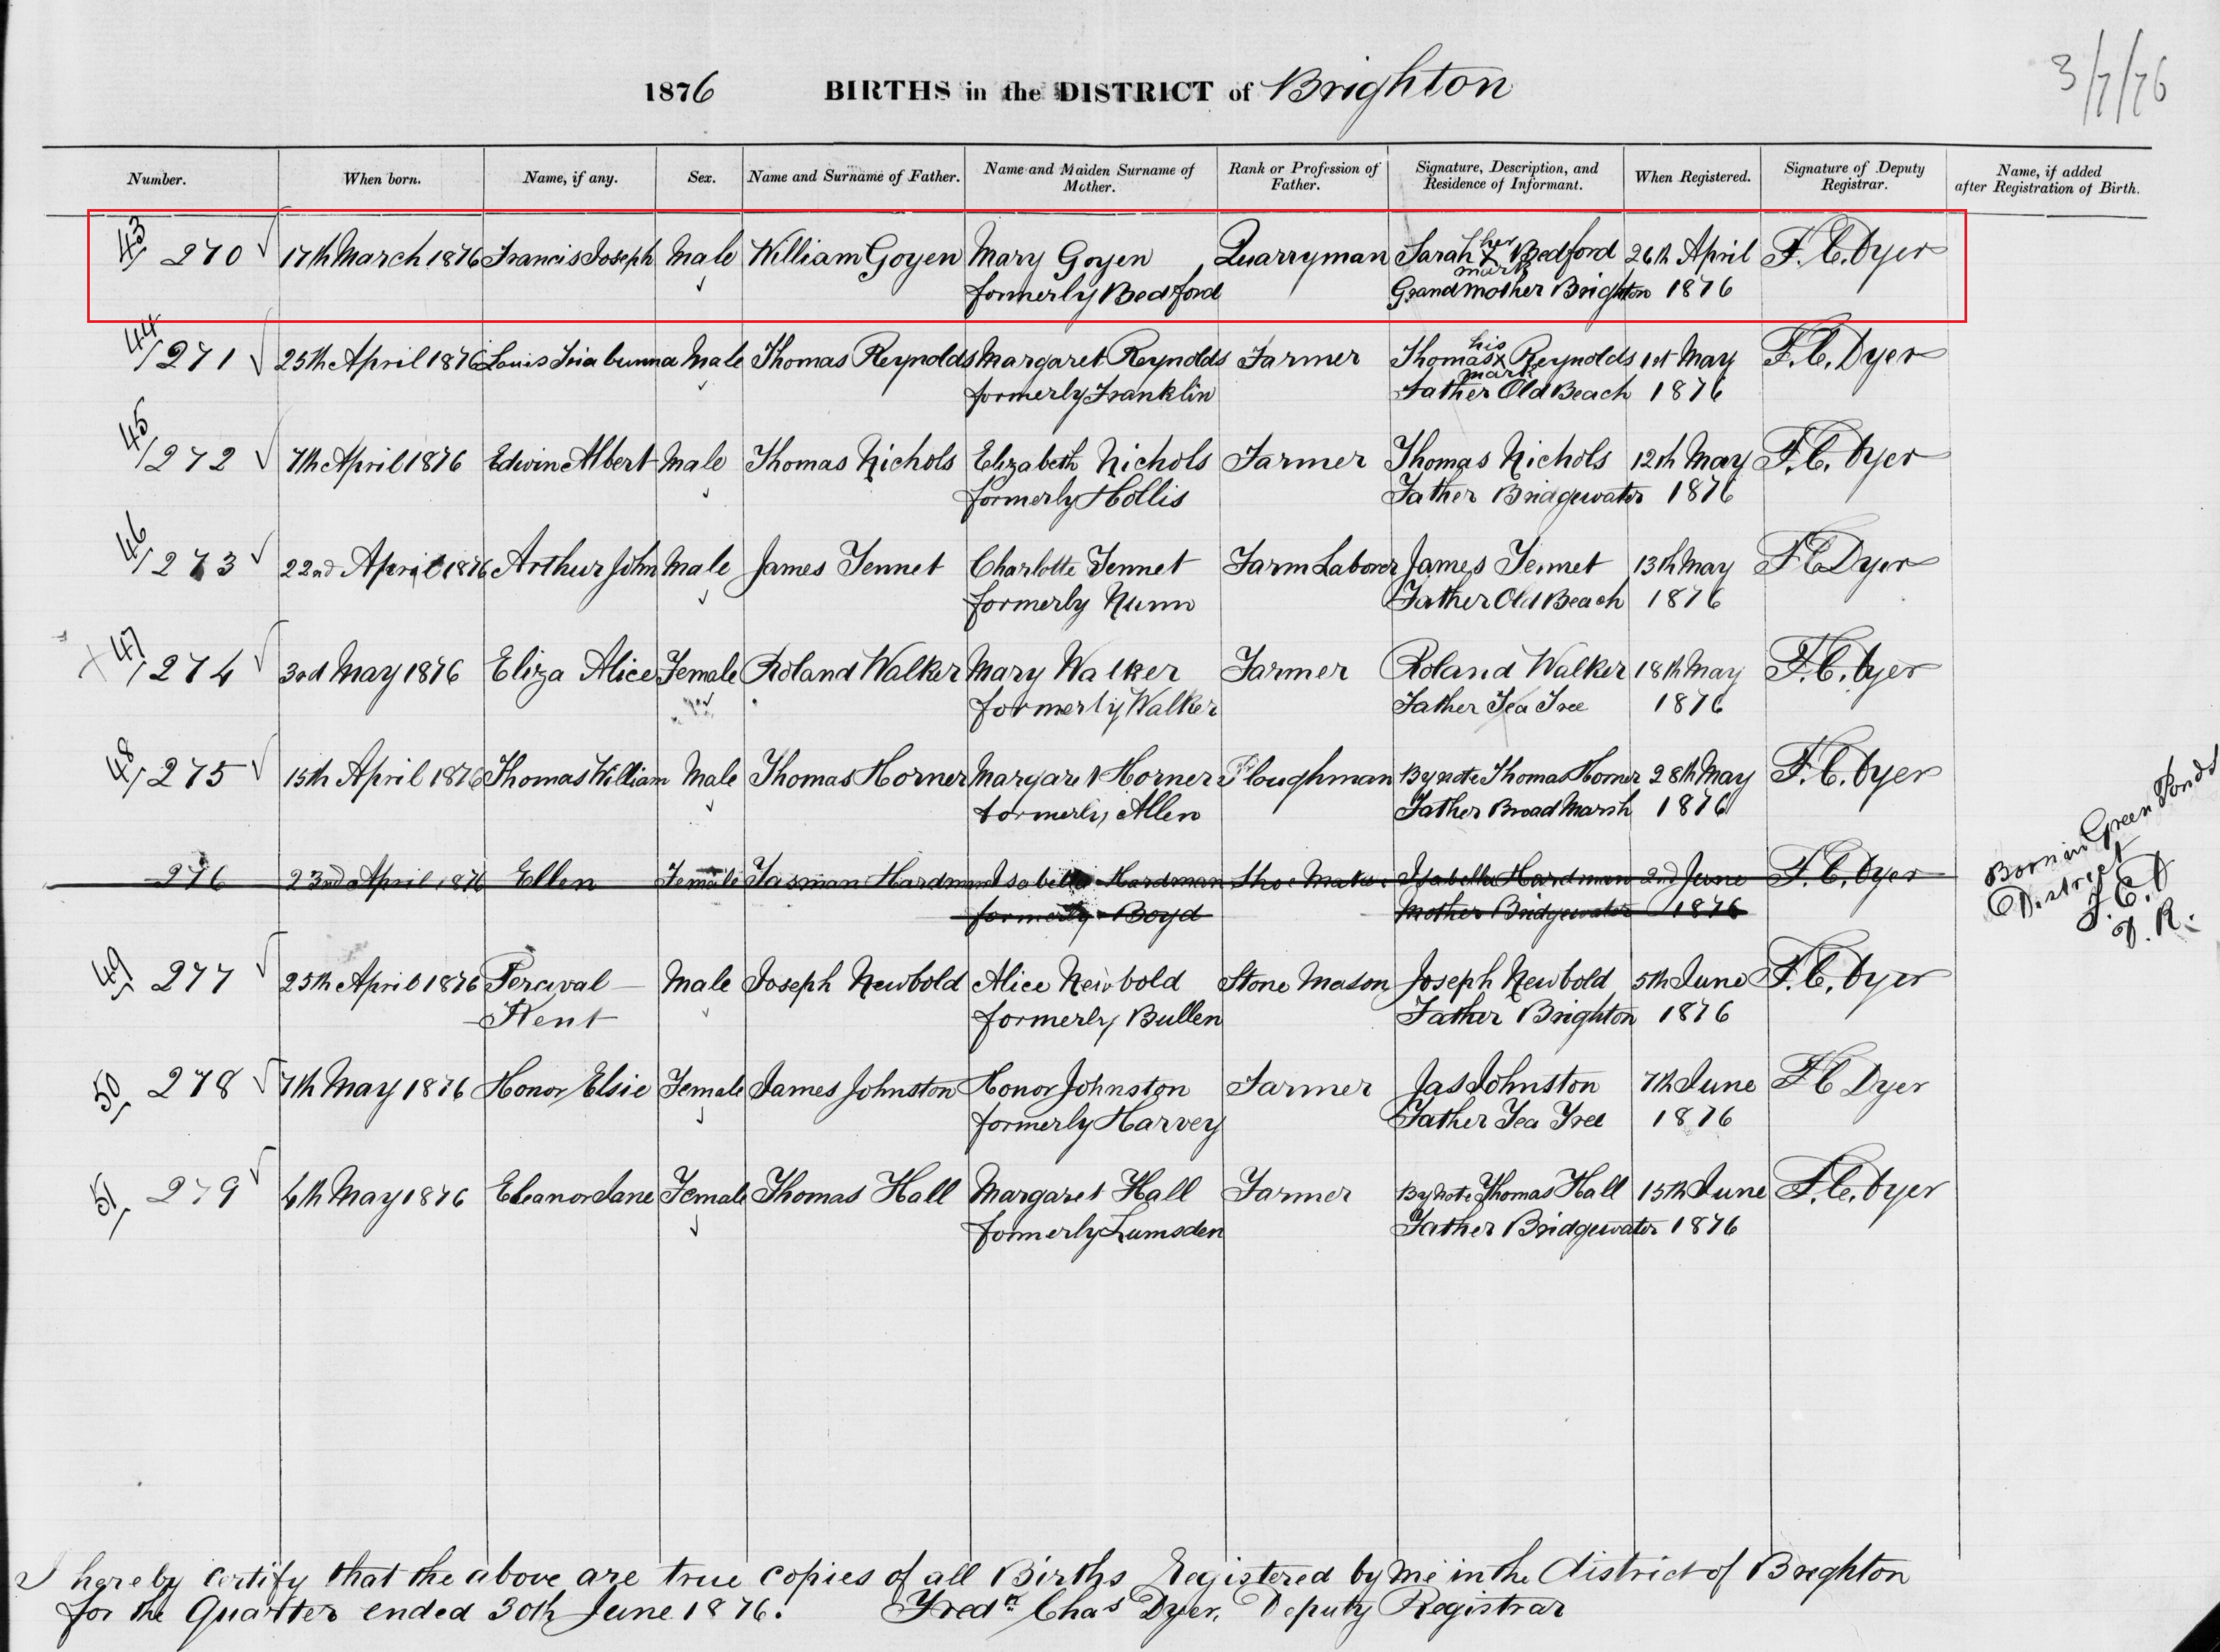 3/7/76
1876 BIRTHS in the DISTRICT of Brighton
Number. When born. Name, if any. Sex. Name and Surname of Father. Name and Maiden Surname of Mother. Rank or Profession of Father. Signature, Description, and Residence of Informant. When Registered. Signature of Deputy Registrar. Name, if added after Registration of Birth.
43/ 270 17th March 1876 Francis Joseph Male William Goyen Mary Goyen Quarryman Sarah her X mark Bedford 26th April F. C. Dyer
formerly Bedford Grandmother Brighton 1876
44/ 271 25th April 1876 Louis Triabunna Male Thomas Reynolds Margaret Reynolds Farmer Thomas his X mark Reynolds 1st May F. C. Dyer
formerly Franklin Father Old Beach 1876
45/ 272 7th April 1876 Edwin Albert Male Thomas Nichols Elizabeth Nichols Farmer Thomas Nichols 12th May F. C. Dyer
formerly Hollis Father Bridgewater 1876
46/ 273 22nd April 1876 Arthur John Male James Tennet Charlotte Tennet Farm Laborer James Tennet 13th May F C Dyer
formerly Nunn Father Old Beach 1876
X 47/ 274 3rd May 1876 Eliza Alice Female Roland Walker Mary Walker Farmer Roland Walker 18th May F. C. Dyer
formerly Walker Father Tea Tree 1876
48/ 275 15th April 1876 Thomas William Male Thomas Horner Margaret Horner Ploughman By note Thomas Horner 28th May F. C. Dyer
formerly Allen Father Broad Marsh 1876
276 23rd April 1876 Ellen Female Tasman Hardman Isabella Hardman Shoe Maker Isabella Hardman 2nd June F. C. Dyer
formerly Boyd Mother Bridgewater 1876
Born in Green Ponds
District
F. C. D
D. R.
49/ 277 25th April 1876 Percival Male Joseph Newbold Alice Newbold Stone Mason Joseph Newbold 5th June F. C. Dyer
Kent formerly Bullen Father Brighton 1876
50/ 278 7th May 1876 Honor Elsie Female James Johnston Honor Johnston Farmer Jas Johnston 7th June F C Dyer
formerly Harvey Father Tea Tree 1876
51/ 279 6th May 1876 Eleanor Jane Female Thomas Hall Margaret Hall Farmer By note Thomas Hall 15th June F. C. Dyer
formerly Lumsden Father Bridgewater 1876
I hereby certify that the above are true copies of all Births Registered by me in the district of Brighton
for the Quarter ended 30th June 1876. Fredk Chas Dyer, Deputy Registrar